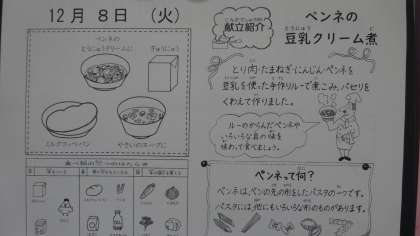 12月 8日 (火)
ペンネの
とうにゅうクリームに
ぎゅうにゅう
ミルクコッペパン
やさいのスープに
献立紹介
ペンネの
とうにゅう
豆乳クリーム煮
とり肉・たまねぎ・にんじん・ペンネを
豆乳を使った手作りルーで煮こみ、パセリを
くわえて作りました。
ルーのからんだペンネや
いろいろな具の味を
味わって食べましょう。
ペンネって何？
ペンネは、ペンの先の形をしたパスタの一つです。
パスタには、他にもいろいろな形のものがあります。